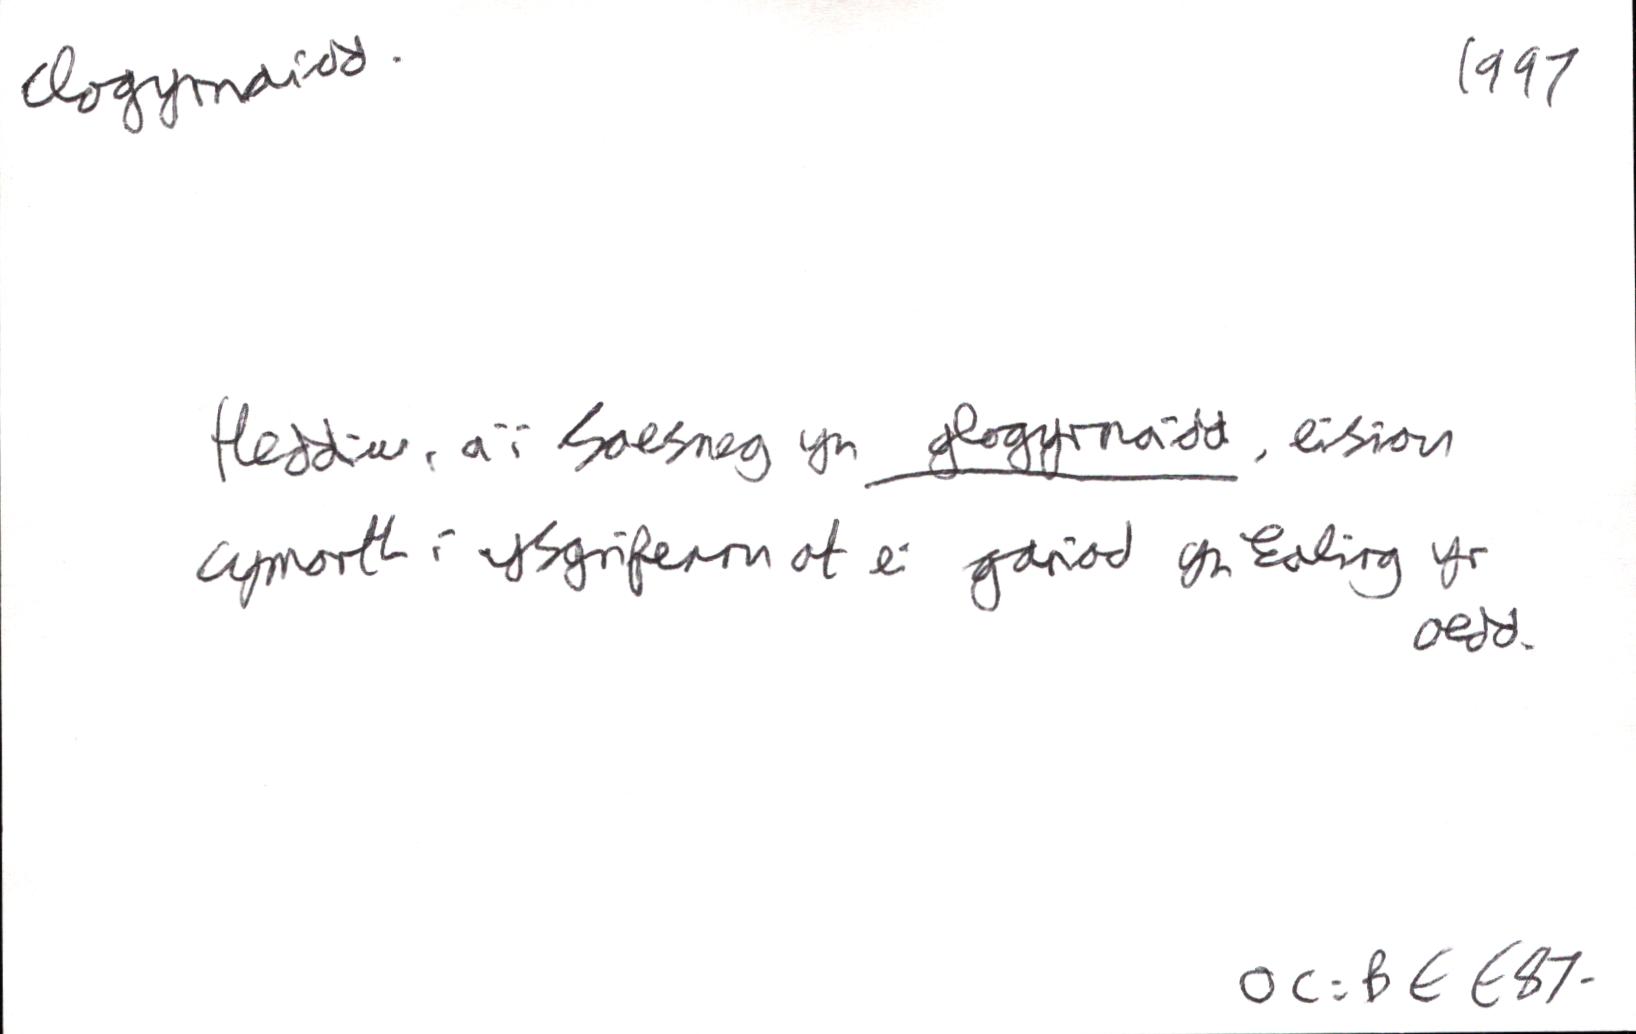 clogyrnaidd. 1997
Heddiw, a'i Saesneg yn glogyrnaidd, eision
cymorth i ysgrifennu at ei gariad yn Ealing yr
oedd.
OC: BEE 87.